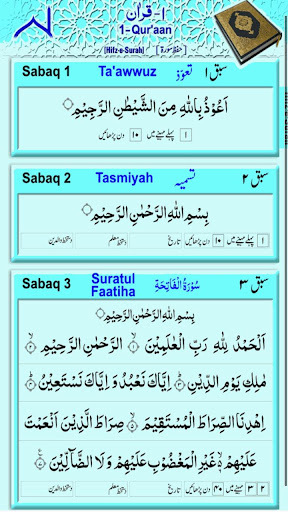 ۱- قرآن
1-Qur'aan
[Hifz-e-Surah] [حفظ سورۃ]
Sabaq 1 Ta'awwuz تعوّذ سبق ۱
اَعُوْذُ بِاللّٰهِ مِنَ الشَّيْطٰنِ الرَّجِيْمِ
۱ پہلے مہینے میں ۱۰ دن پڑھائیں
Sabaq 2 Tasmiyah تسمیہ سبق ۲
بِسْمِ اللّٰهِ الرَّحْمٰنِ الرَّحِيْمِ
۱ پہلے مہینے میں ۱۰ دن پڑھائیں تاریخ دستخط معلم دستخط والدین
Sabaq 3 Suratul Faatiha سُوْرَةُ الْفَاتِحَةِ سبق ۳
بِسْمِ اللّٰهِ الرَّحْمٰنِ الرَّحِيْمِ
اَلْحَمْدُ لِلّٰهِ رَبِّ الْعٰلَمِيْنَ ۙ۱ الرَّحْمٰنِ الرَّحِيْمِ ۙ۲
مٰلِكِ يَوْمِ الدِّيْنِ ۳ اِيَّاكَ نَعْبُدُ وَ اِيَّاكَ نَسْتَعِيْنُ ۴
اِهْدِنَا الصِّرَاطَ الْمُسْتَقِيْمَ ۙ۵ صِرَاطَ الَّذِيْنَ اَنْعَمْتَ
عَلَيْهِمْ ۙ۶ غَيْرِ الْمَغْضُوْبِ عَلَيْهِمْ وَلَا الضَّآلِّيْنَ ۷
۲ ۳ مہینے میں ۴۰ دن پڑھائیں تاریخ دستخط معلم دستخط والدین